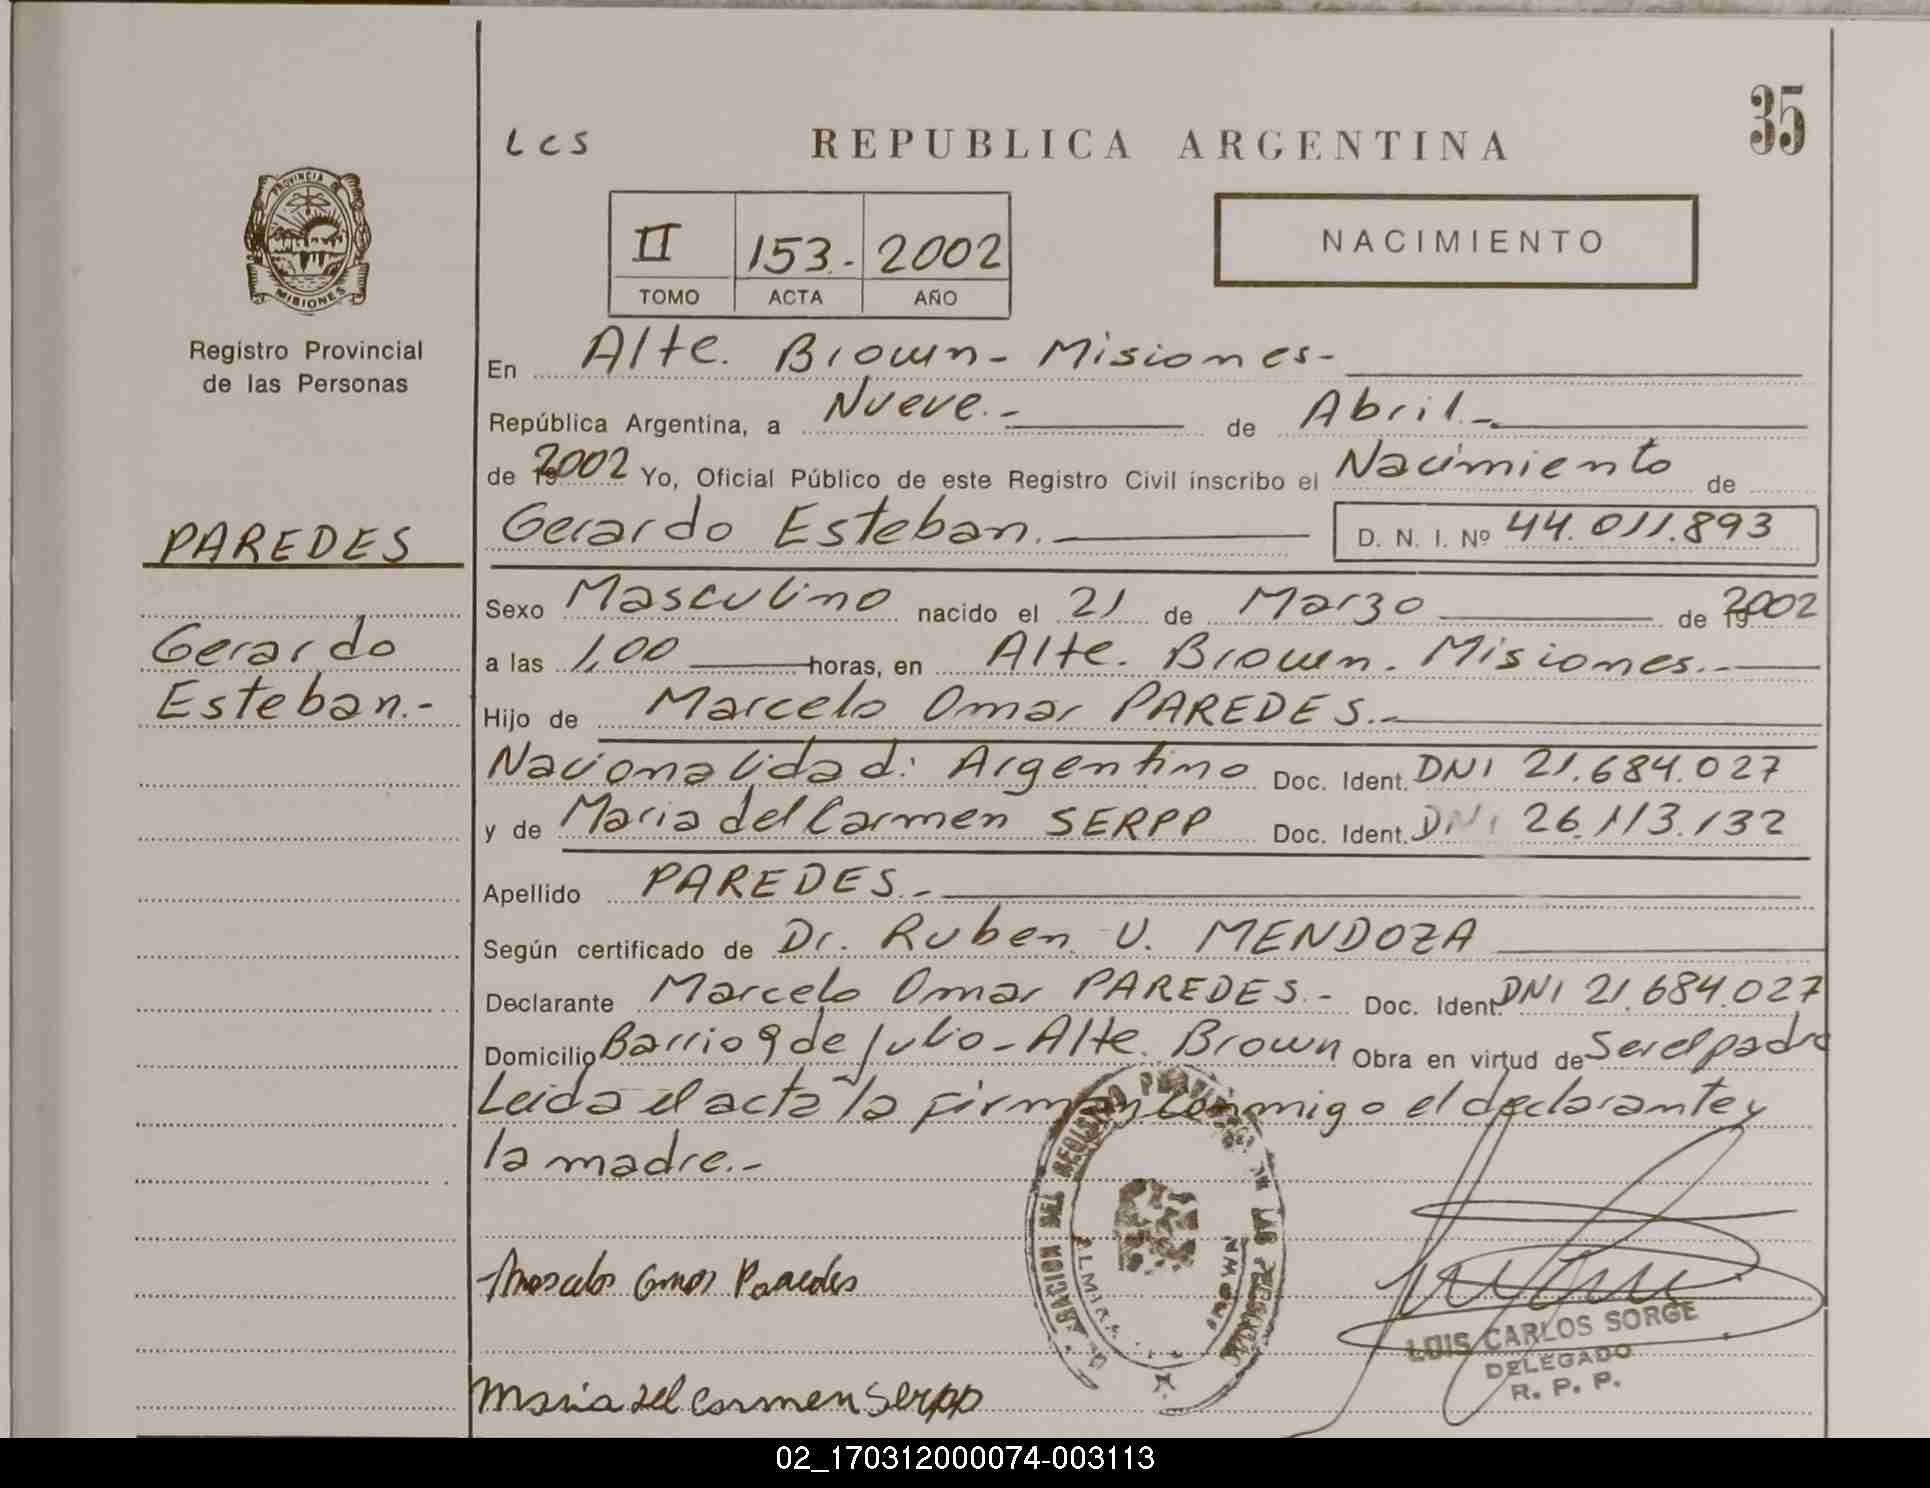 35
LCS
REPUBLICA ARGENTINA
PROVINCIA DE
MISIONES
Registro Provincial
de las Personas
II 153.- 2002
TOMO ACTA AÑO
NACIMIENTO
En Alte. Brown - Misiones-
República Argentina, a Nueve.- de Abril.-
de 2002 Yo, Oficial Público de este Registro Civil inscribo el Nacimiento de
PAREDES
Gerardo Esteban.
D. N. I. Nº 44.011.893
Sexo Masculino nacido el 21 de Marzo de 2002
Gerardo
a las 1,00 horas, en Alte. Brown. Misiones.-
Esteban.-
Hijo de Marcelo Omar PAREDES.-
Nacionalidad: Argentino Doc. Ident. DNI 21.684.027
y de Maria del Carmen SERPP Doc. Ident. DNI 26.113.132
Apellido PAREDES.-
Según certificado de Dr. Ruben U. MENDOZA
Declarante Marcelo Omar PAREDES.- Doc. Ident. DNI 21.684.027
Domicilio Barrio 9 de Julio - Alte. Brown Obra en virtud de Ser el padre
Leida el acta la firman conmigo el declarante y
la madre.-
Marcelo Omar Paredes
LUIS CARLOS SORGE
DELEGADO
R. P. P.
Maria del Carmen Serpp
02_170312000074-003113